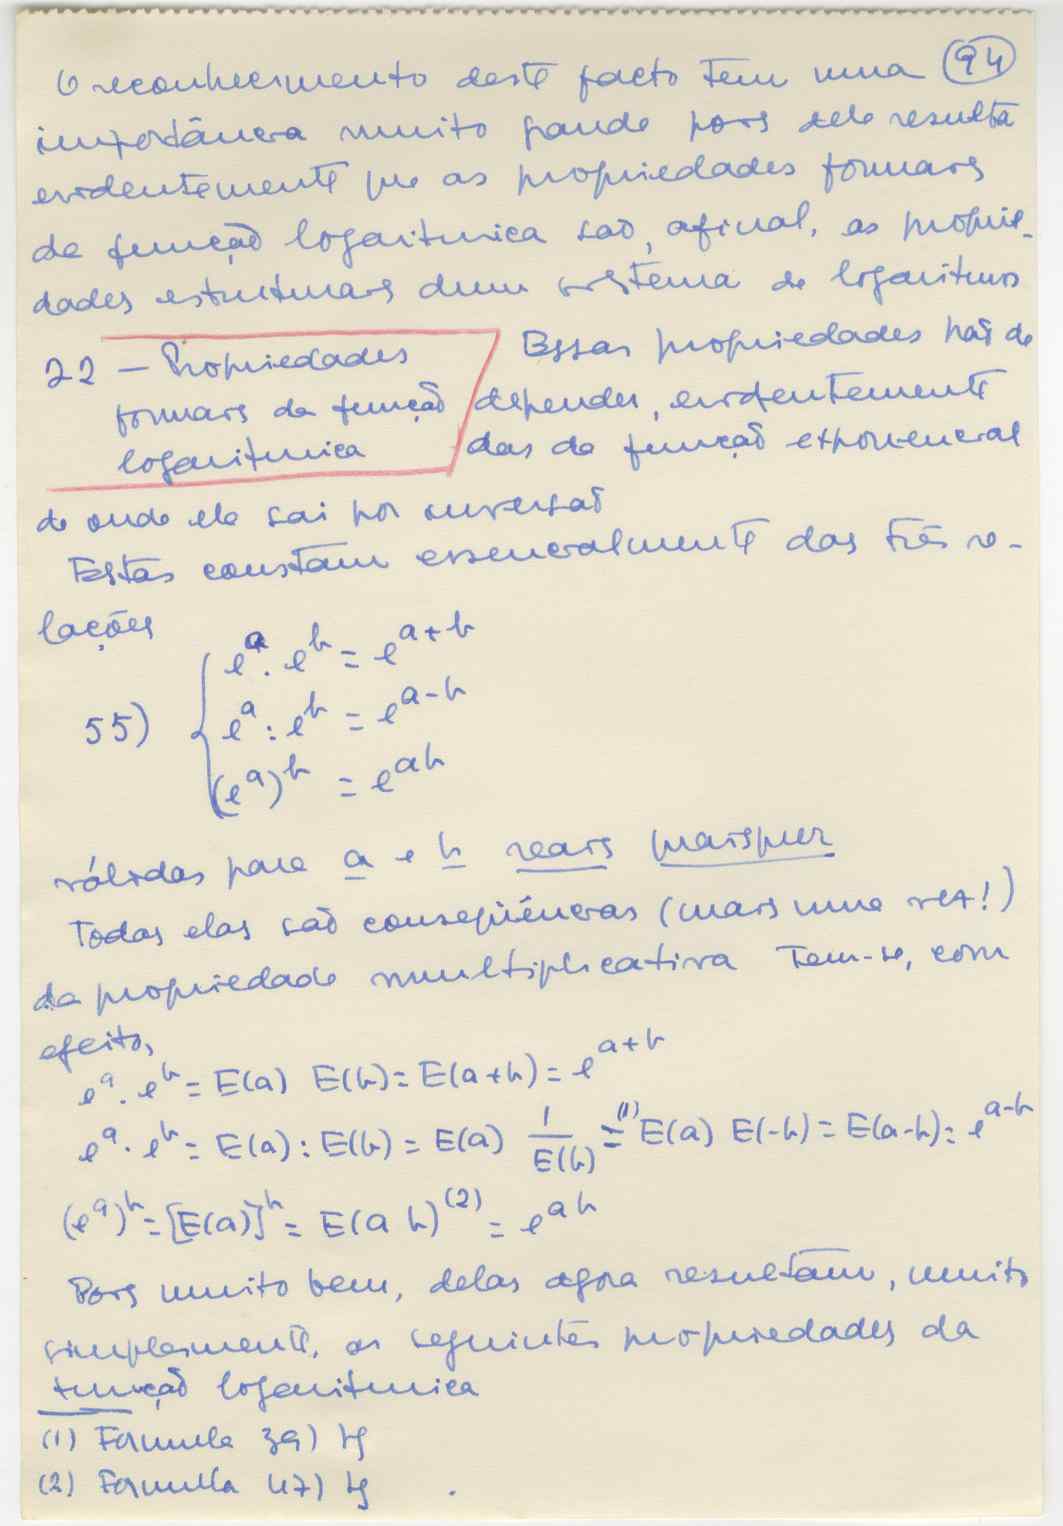 O reconhecimento deste facto tem uma (94)
importância muito grande pois dele resulta
evidentemente que as propriedades formais
da função logarítmica são, afinal, as proprie-
dades estruturais dum sistema de logaritmos
22 — Propriedades
formais da função
logarítmica
Essas propriedades hão de
depender, evidentemente
das da função exponencial
de onde ela sai por inversão
Estas constam essencialmente das três re-
lações
55) { e^a . e^b = e^{a+b}
e^a : e^b = e^{a-b}
(e^a)^b = e^{ab}
válidas para a e b reais quaisquer
Todas elas são conseqüências (mais uma vez!)
da propriedade multiplicativa Tem-se, com
efeito,
e^a . e^b = E(a) E(b) = E(a+b) = e^{a+b}
e^a . e^b = E(a) : E(b) = E(a) 1/E(b) =^{(1)} E(a) E(-b) = E(a-b) = e^{a-b}
(e^a)^b = [E(a)]^b = E(a b)^{(2)} = e^{ab}
Pois muito bem, delas agora resultam, muito
simplesmente, as seguintes propriedades da
função logarítmica
(1) Formula 39)
(2) Formula 47)